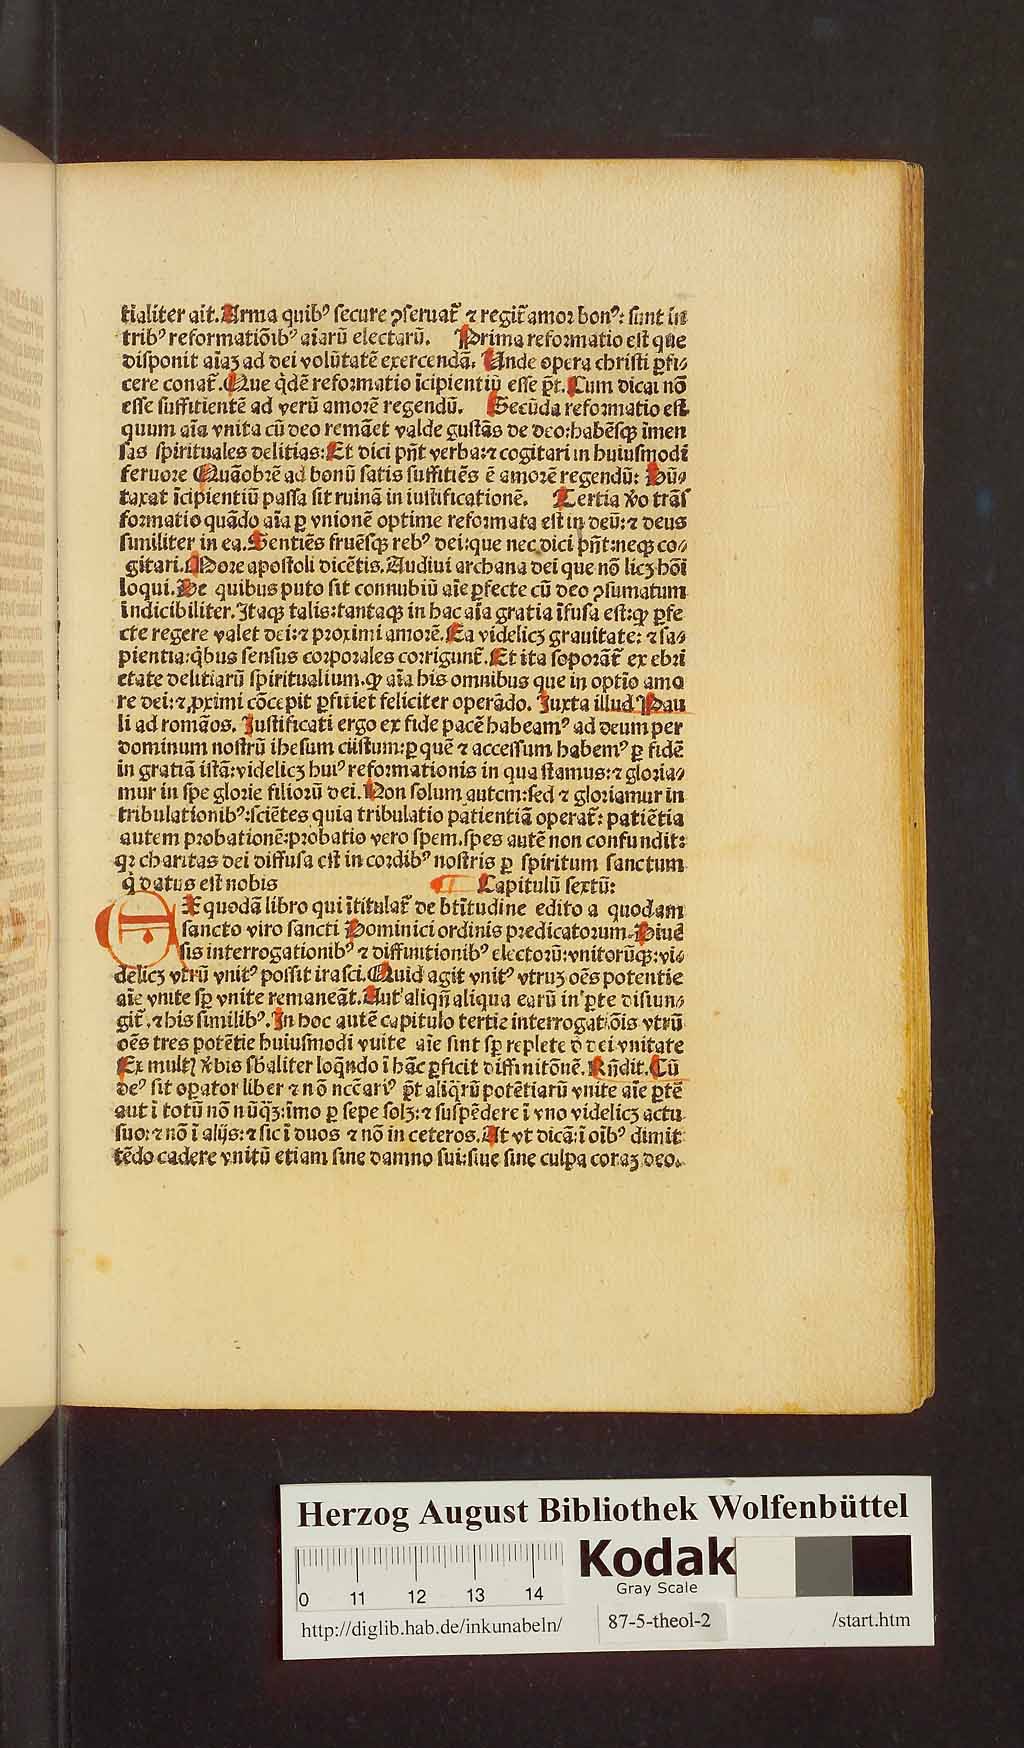 tialiter ait. Arma quibꝰ secure ꝯseruat᷑ ⁊ regit᷑ amor bonꝰ: sunt in
tribꝰ reformatiōibꝰ aīarū electarū. Prima reformatio est que
disponit aīaꝫ ad dei volūtatē exercendā. Unde opera christi ꝑfi⸗
cere conat᷑. Que q̇dē reformatio īcipientiū esse pt̄. Cum dicaı nō
esse suffitientē ad verū amorē regendū. Secūda reformatio est
quum aīa vnita cū deo remāet valde gustās de deo: habēsqꝫ īmen
sas spirituales delitias: Et dici pn̄t verba: ⁊ cogitari in huiusmodi
feruore Quāobrē ad bonū satis suffitiēs ē amorē regendū: Dū⸗
taxat īcipientiū passa sit ruinā in iustificationē. Tertia v̊o trās
formatio quādo aīa ꝑ vnionē optime reformata est in deū: ⁊ deus
similiter in ea. Sentiēs fruēsqꝫ rebꝰ dei: que nec dici pn̄t: neqꝫ co⸗
gitari. More apostoli dicētis. Audiui archana dei que nō licꝫ hōi
loqui. De quibus puto sit connubiū aīe ꝑfecte cū deo ꝯsumatum
indicibiliter. Itaqꝫ talis: tantaqꝫ in hac aīa gratia īfusa est: ꝙ ꝑfe
cte regere valet dei: ⁊ proximi amorē. Ea videlicꝫ grauitate: ⁊ sa⸗
pientia: q̇bus sensus corporales corrigunt᷑. Et ita soporāt᷑ ex ebri
etate delitiarū spiritualium. ꝙ aīa his omnibus que in optīo amo
re dei: ⁊ ꝓximi cōcepit ꝑfiuiet feliciter operādo. Juxta illud Pau
li ad romāos. Justificati ergo ex fide pacē habeamꝰ ad deum per
dominum nostrū ihesum cristum: ꝑ quē ⁊ accessum habemꝰ ꝑ fidē
in gratiā istā: videlicꝫ huiꝰ reformationis in qua stamus: ⁊ gloria⸗
mur in spe glorie filiorū dei. Non solum autem: sed ⁊ gloriamur in
tribulationibꝰ: sciētes quia tribulatio patientiā operat᷑: patiētia
autem probationē: probatio vero spem. spes autē non confundit:
qꝛ charitas dei diffusa est in cordibꝰ nostris ꝑ spiritum sanctum
q̇ datus est nobis Capitulū sextū:
EX quodā libro qui ītitulat᷑ de btītudine edito a quodam
sancto viro sancti Dominici ordinis predicatorum. Diuē
sis interrogationibꝰ ⁊ diffinitionibꝰ electorū: vnitorūqꝫ: vi⸗
delicꝫ vtrū vnitꝰ possit irasci. Quid agit vnitꝰ vtruꝫ oēs potentie
aīe vnite sꝑ vnite remaneāt. Aut aliqn̄ aliqua earū in ꝑte disiun⸗
git᷑. ⁊ his similibꝰ. In hoc autē capitulo tertie interrogatiōis vtrū
oēs tres potētie huiusmodi vnite aīe sint sꝑ replete d̄ dei vnitate
Ex mult᷑ v̊bis sb̄aliter loqn̄do ī hāc ꝑficit diffinitōnē. Rn̄dit. Cū
deꝰ sit oꝑator liber ⁊ nō nccāriꝰ pt̄ aliq̄rū potētiarū vnite aīe ꝑtē
aut ī totū nō nūq̄ꝫ: īmo ꝑ sepe solꝫ: ⁊ suspēdere ī vno videlicꝫ actu
suo: ⁊ nō ī alijs: ⁊ sic ī duos ⁊ nō in ceteros. At vt dicā: ī oībꝰ dimit
tēdo cadere vnitū etiam sine damno sui: siue sine culpa coraꝫ deo.
Herzog August Bibliothek Wolfenbüttel
Kodak
Gray Scale
0 11 12 13 14
http://diglib.hab.de/inkunabeln/ 87-5-theol-2 /start.htm